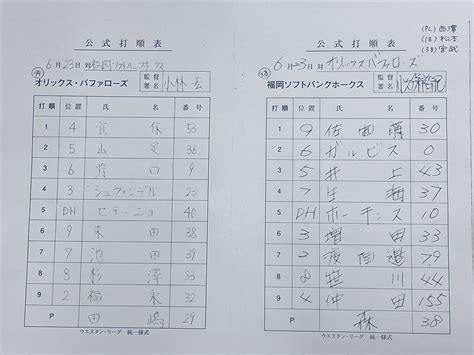 (PL) 西澤
(1B) 松本
(3B) 宮武
公式打順表
6月23日 対 福岡ソフトバンクホークス
オリックス・バファローズ
監督署名 小林 宏
打順 位置 者名 番号
1 4 宜保 53
2 5 山足 36
3 6 野口 9
4 3 シュウィンデル 23
5 DH セデーニョ 40
6 9 来田 38
7 7 池田 39
8 8 杉澤 33
9 2 福永 32
P 田嶋 29
ウエスタン・リーグ 統一様式
公式打順表
6月23日 対 オリックスバファローズ
福岡ソフトバンクホークス
監督署名
打順 位置 者名 番号
1 9 佐藤 30
2 6 ガルビス 0
3 5 井上 43
4 7 生海 37
5 DH ホーキンス 10
6 3 増田 33
7 2 渡邉 79
8 8 笹川 44
9 4 仲田 155
P 森 38
ウエスタン・リーグ 統一様式